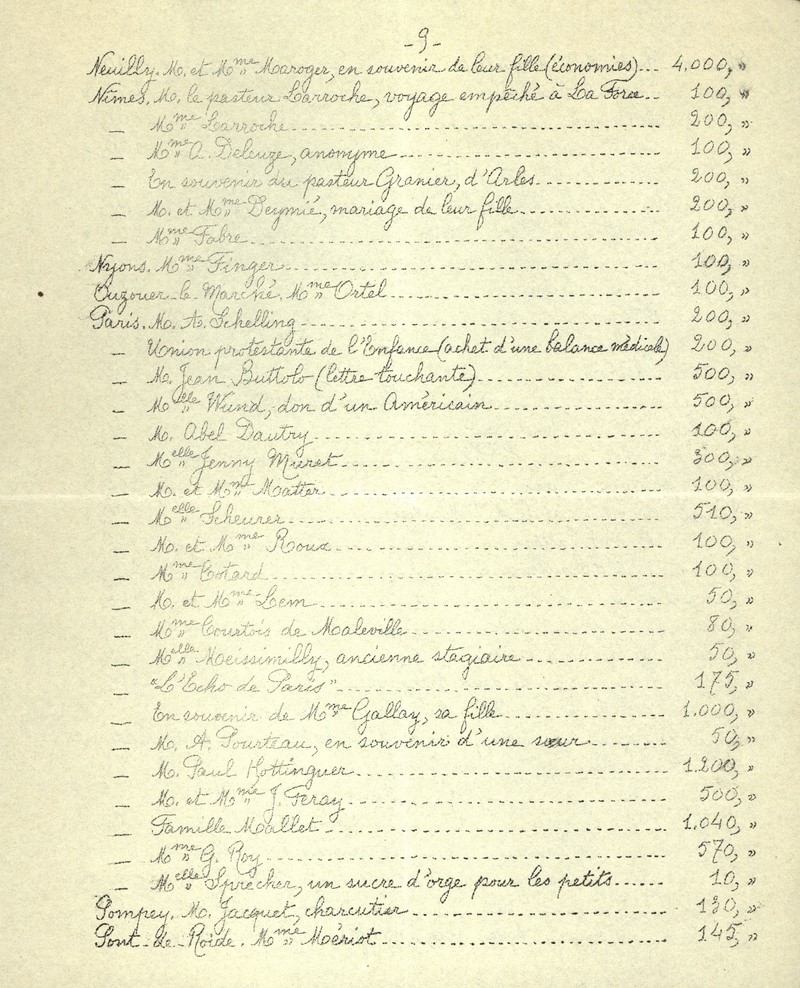 -9-
Neuilly. M. et Mme Maroger, en souvenir de leur fille (économies) --- 4.000, "
Nîmes. M. le pasteur Larroche, voyage empêché à La Force -- 100, "
— Mme Larroche --- 200, "
— Mme A. Deleuze, anonyme --- 100, "
— En souvenir du pasteur Granier, d'Arles --- 200, "
— M. et Mme Deymié, mariage de leur fille --- 200, "
— Mme Fabre --- 100, "
Nyons. Mme Finger --- 100, "
Ouzouer-le-Marché. Mme Ortel --- 100, "
Paris. M. A. Schelling --- 200, "
— Union protestante de l'Enfance (achat d'une balance médicale) 200, "
— M. Jean Buttolo (lettre touchante) --- 500, "
— Melle Wund, don d'un Américain --- 500, "
— M. Abel Dautry --- 100, "
— Melle Jenny Muret --- 300, "
— M. et Mme Matter --- 100, "
— Melle Scheurer --- 510, "
— M. et Mme Roux --- 100, "
— Mme Cotard --- 100, "
— M. et Mme Lem --- 50, "
— Mme Courtois de Maleville --- 80, "
— Melle Meissimilly, ancienne stagiaire --- 50, "
— "L'Echo de Paris" --- 175, "
— En souvenir de Mme Gallay, sa fille --- 1.000, "
— M. A. Pourteau, en souvenir d'une sœur --- 50, "
— M. Paul Hottinguer --- 1.200, "
— M. et Mme J. Feray --- 500, "
— Famille Mallet --- 1.040, "
— Mme G. Roy --- 570, "
— Melle Sprecher, un sucre d'orge pour les petits --- 10, "
Pompey. M. Jacquet, charcutier --- 130, "
Pont-de-Roide. Mme Mériot --- 145, "